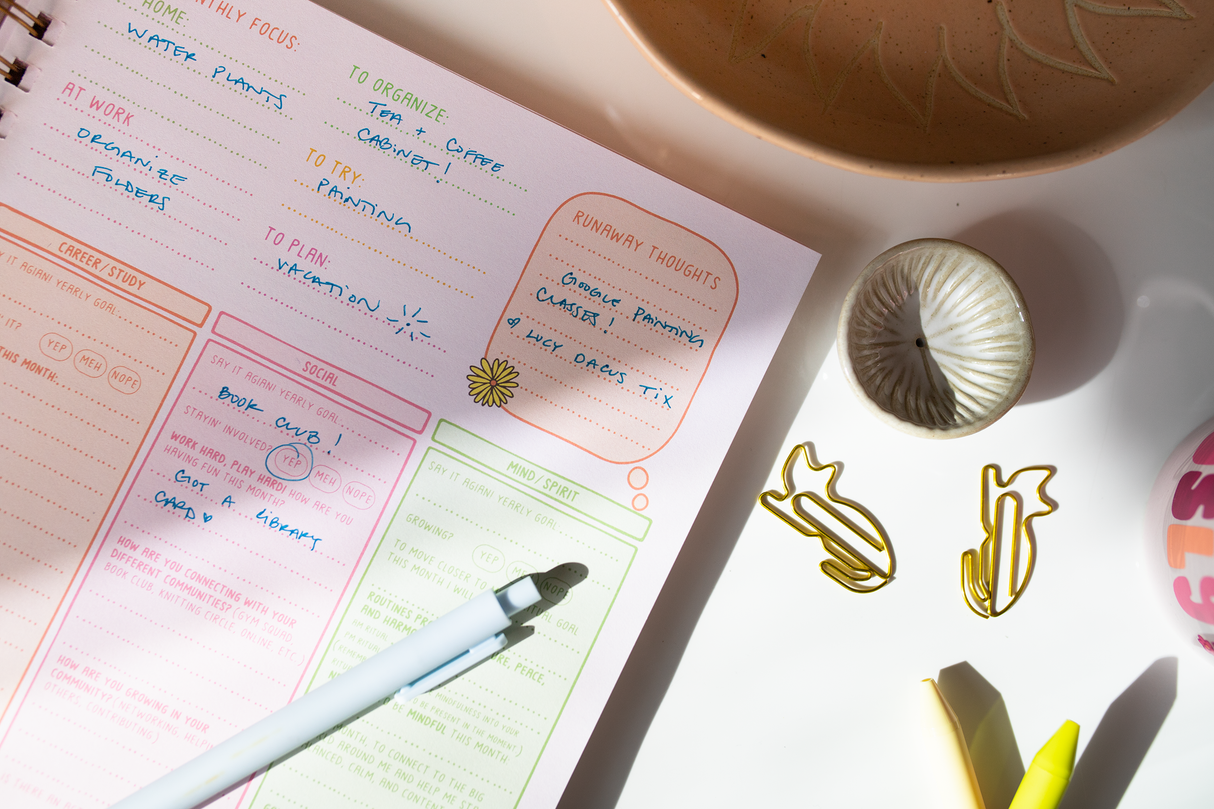 MONTHLY FOCUS:
HOME:
WATER PLANTS
AT WORK
ORGANIZE
FOLDERS
TO ORGANIZE:
TEA + COFFEE
CABINET!
TO TRY:
PAINTING
TO PLAN:
VACATION
RUNAWAY THOUGHTS
GOOGLE PAINTING
CLASSES!
LUCY DACUS TIX
CAREER/STUDY
SAY IT AGIAN! YEARLY GOAL:
IT?
YEP MEH NOPE
THIS MONTH:
SOCIAL
SAY IT AGIAN! YEARLY GOAL:
BOOK CLUB!
STAYIN' INVOLVED? YEP MEH NOPE
WORK HARD, PLAY HARD! HOW ARE YOU
HAVING FUN THIS MONTH?
GOT A LIBRARY
CARD ♥
HOW ARE YOU CONNECTING WITH YOUR
DIFFERENT COMMUNITIES? (GYM SQUAD,
BOOK CLUB, KNITTING CIRCLE, ONLINE, ETC.)
HOW ARE YOU GROWING IN YOUR
COMMUNITY? (NETWORKING, HELPING
OTHERS, CONTRIBUTING)
MIND/SPIRIT
SAY IT AGIAN! YEARLY GOAL:
GROWING?
YEP NOPE
TO MOVE CLOSER TO
GOAL
THIS MONTH I WILL
ROUTINES
PEACE,
AND
MINDFULNESS INTO YOUR
BE PRESENT IN THE MOMENT.)
BE MINDFUL THIS MONTH:
MONTH, TO CONNECT TO THE BIG
AROUND ME AND HELP ME
CALM, AND